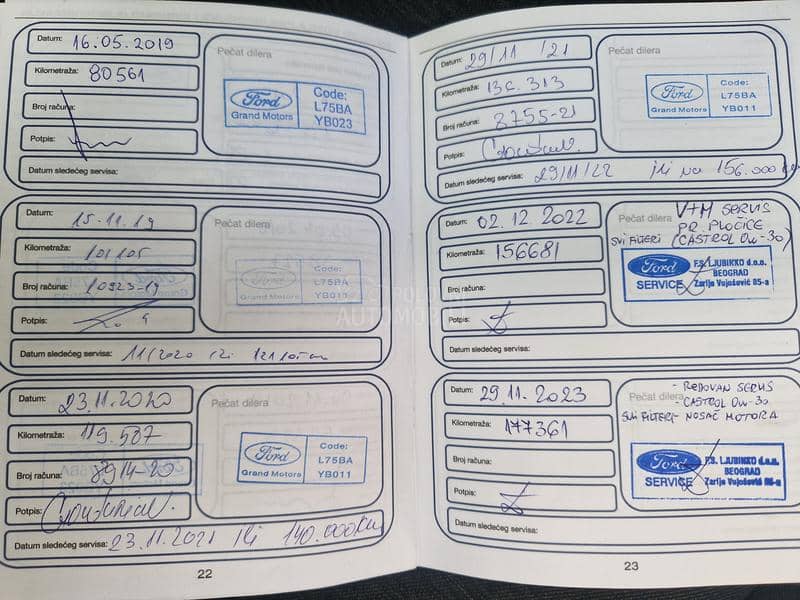 Datum: 16.05.2019
Kilometraža: 80561
Broj računa:
Potpis:
Datum sledećeg servisa:
Pečat dilera
Ford
Grand Motors
Code:
L75BA
YB023
Datum: 15.11.19
Kilometraža: 101105
Broj računa: 10923-19
Potpis:
Datum sledećeg servisa: 11/2020 ili 121.105 km
Pečat dilera
Ford
Grand Motors
Code:
L75BA
YB011
Datum: 23.11.2020
Kilometraža: 119.587
Broj računa: 8914-20
Potpis:
Datum sledećeg servisa: 23.11.2021 ili 140.000 km
Pečat dilera
Ford
Grand Motors
Code:
L75BA
YB011
22
Datum: 29/11/21
Kilometraža: 136.313
Broj računa: 8755-21
Potpis:
Datum sledećeg servisa: 29/11/22 ili na 156.000 km
Pečat dilera
Ford
Grand Motors
Code:
L75BA
YB011
Datum: 02.12.2022
Kilometraža: 156681
Broj računa:
Potpis:
Datum sledećeg servisa:
Pečat dilera V+M SERVIS
PR. PLOČICE
SVI FILTERI (CASTROL 0W-30)
Ford
SERVICE
F.S. LJUBINKO d.o.o.
BEOGRAD
Zarija Vujoševića 85-a
Datum: 29.11.2023
Kilometraža: 177361
Broj računa:
Potpis:
Datum sledećeg servisa:
Pečat dilera
- REDOVAN SERVIS
- CASTROL 0W-30
SVI FILTERI - NOSAČ MOTORA
Ford
SERVICE
F.S. LJUBINKO d.o.o.
BEOGRAD
Zarija Vujoševića 85-a
23